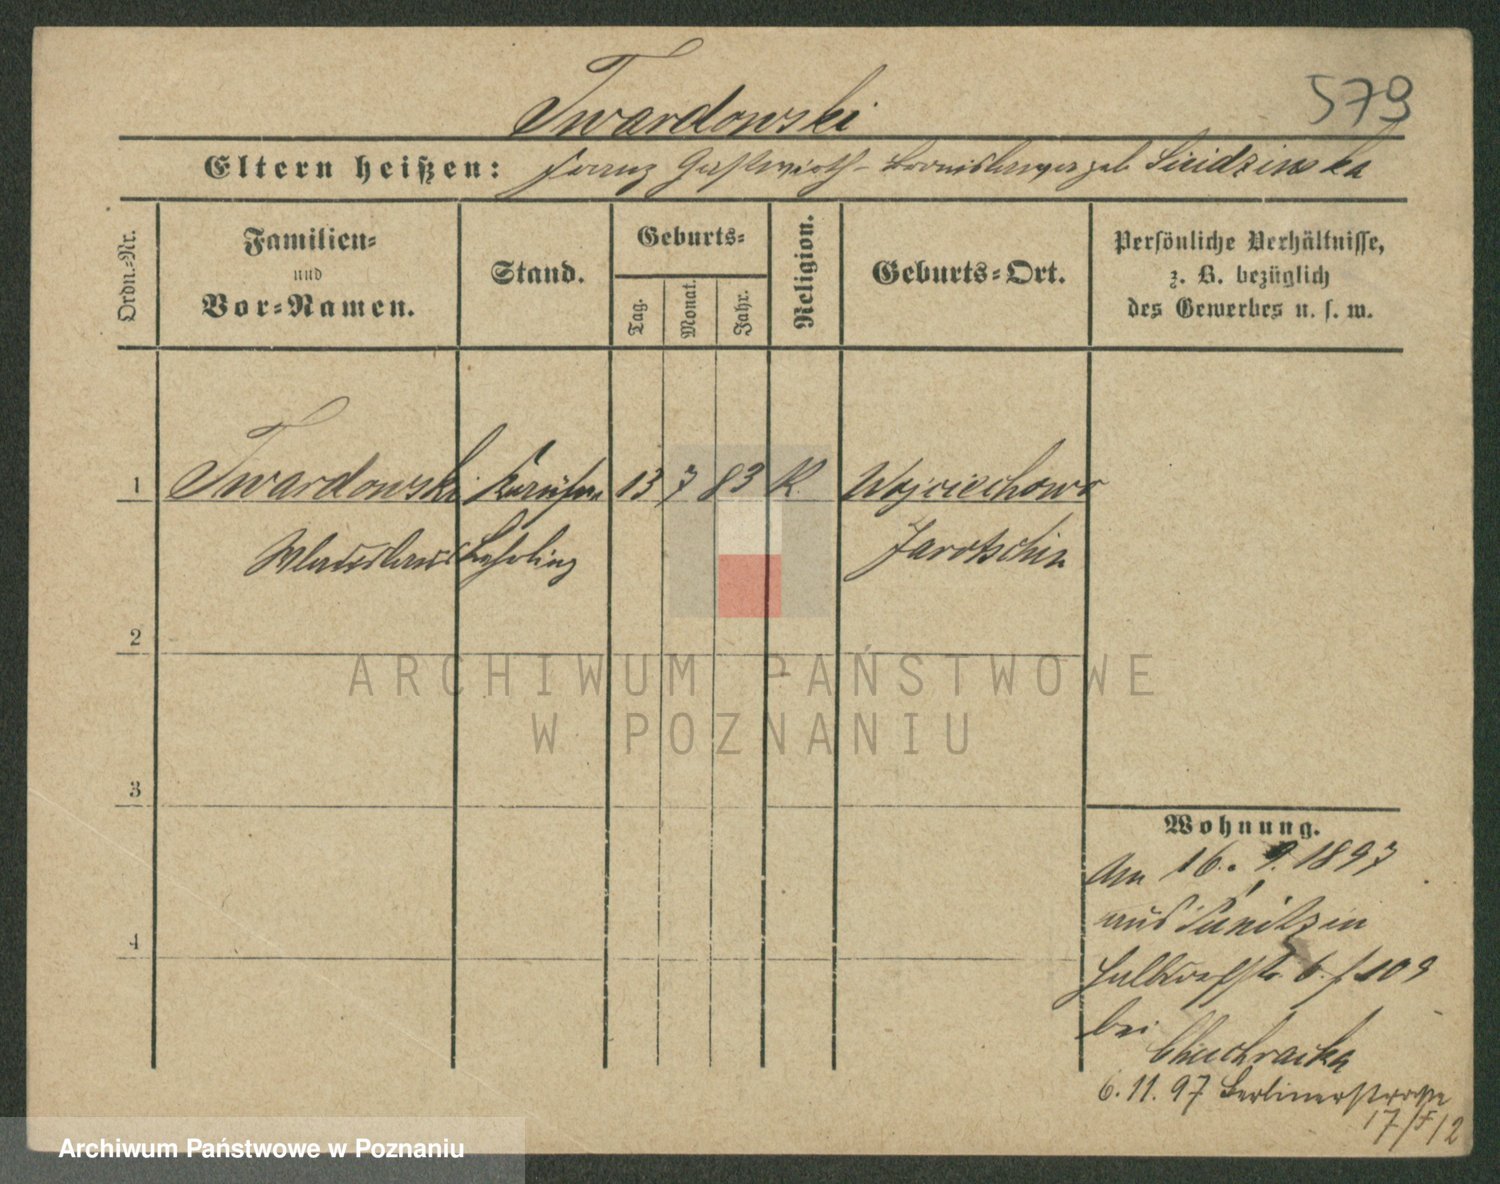 579
Twardowski
Eltern heißen: Franz Gastwirth - geb.
Ordn.-Nr.
Familien-
und
Vor-Namen.
Stand.
Geburts-
Tag.
Monat.
Jahr.
Religion.
Geburts-Ort.
Persönliche Verhältnisse,
z. B. bezüglich
des Gewerbes u. s. w.
1 Twardowski 13 7 83 K. Wojciechowo
Wladislaus Lehrling Jarotschin
2
3
4
Wohnung.
Am 16. 9. 1897
aus
6. 109
bei
6. 11. 97 Berlinerstrasse
17/F/2
ARCHIWUM PAŃSTWOWE
W POZNANIU
Archiwum Państwowe w Poznaniu